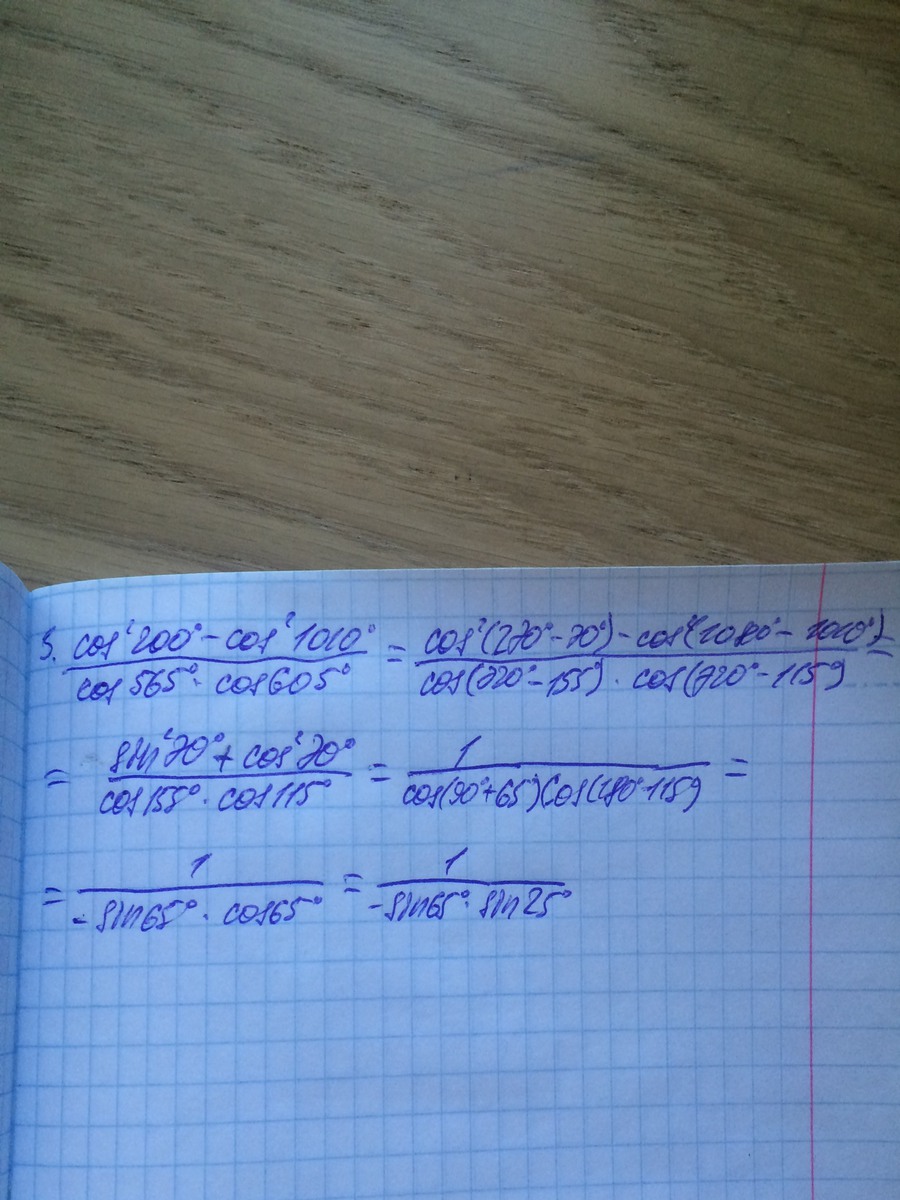 3. cos²200° - cos²1010° / cos565° · cos605° = cos²(270° - 70°) - cos²(1080° - 1010°) / cos(720° - 155°) · cos(720° - 115°) =
= sin²70° + cos²70° / cos155° · cos115° = 1 / cos(90° + 65°) cos(180° - 115°) =
= 1 / -sin65° · cos65° = 1 / -sin65° · sin25°